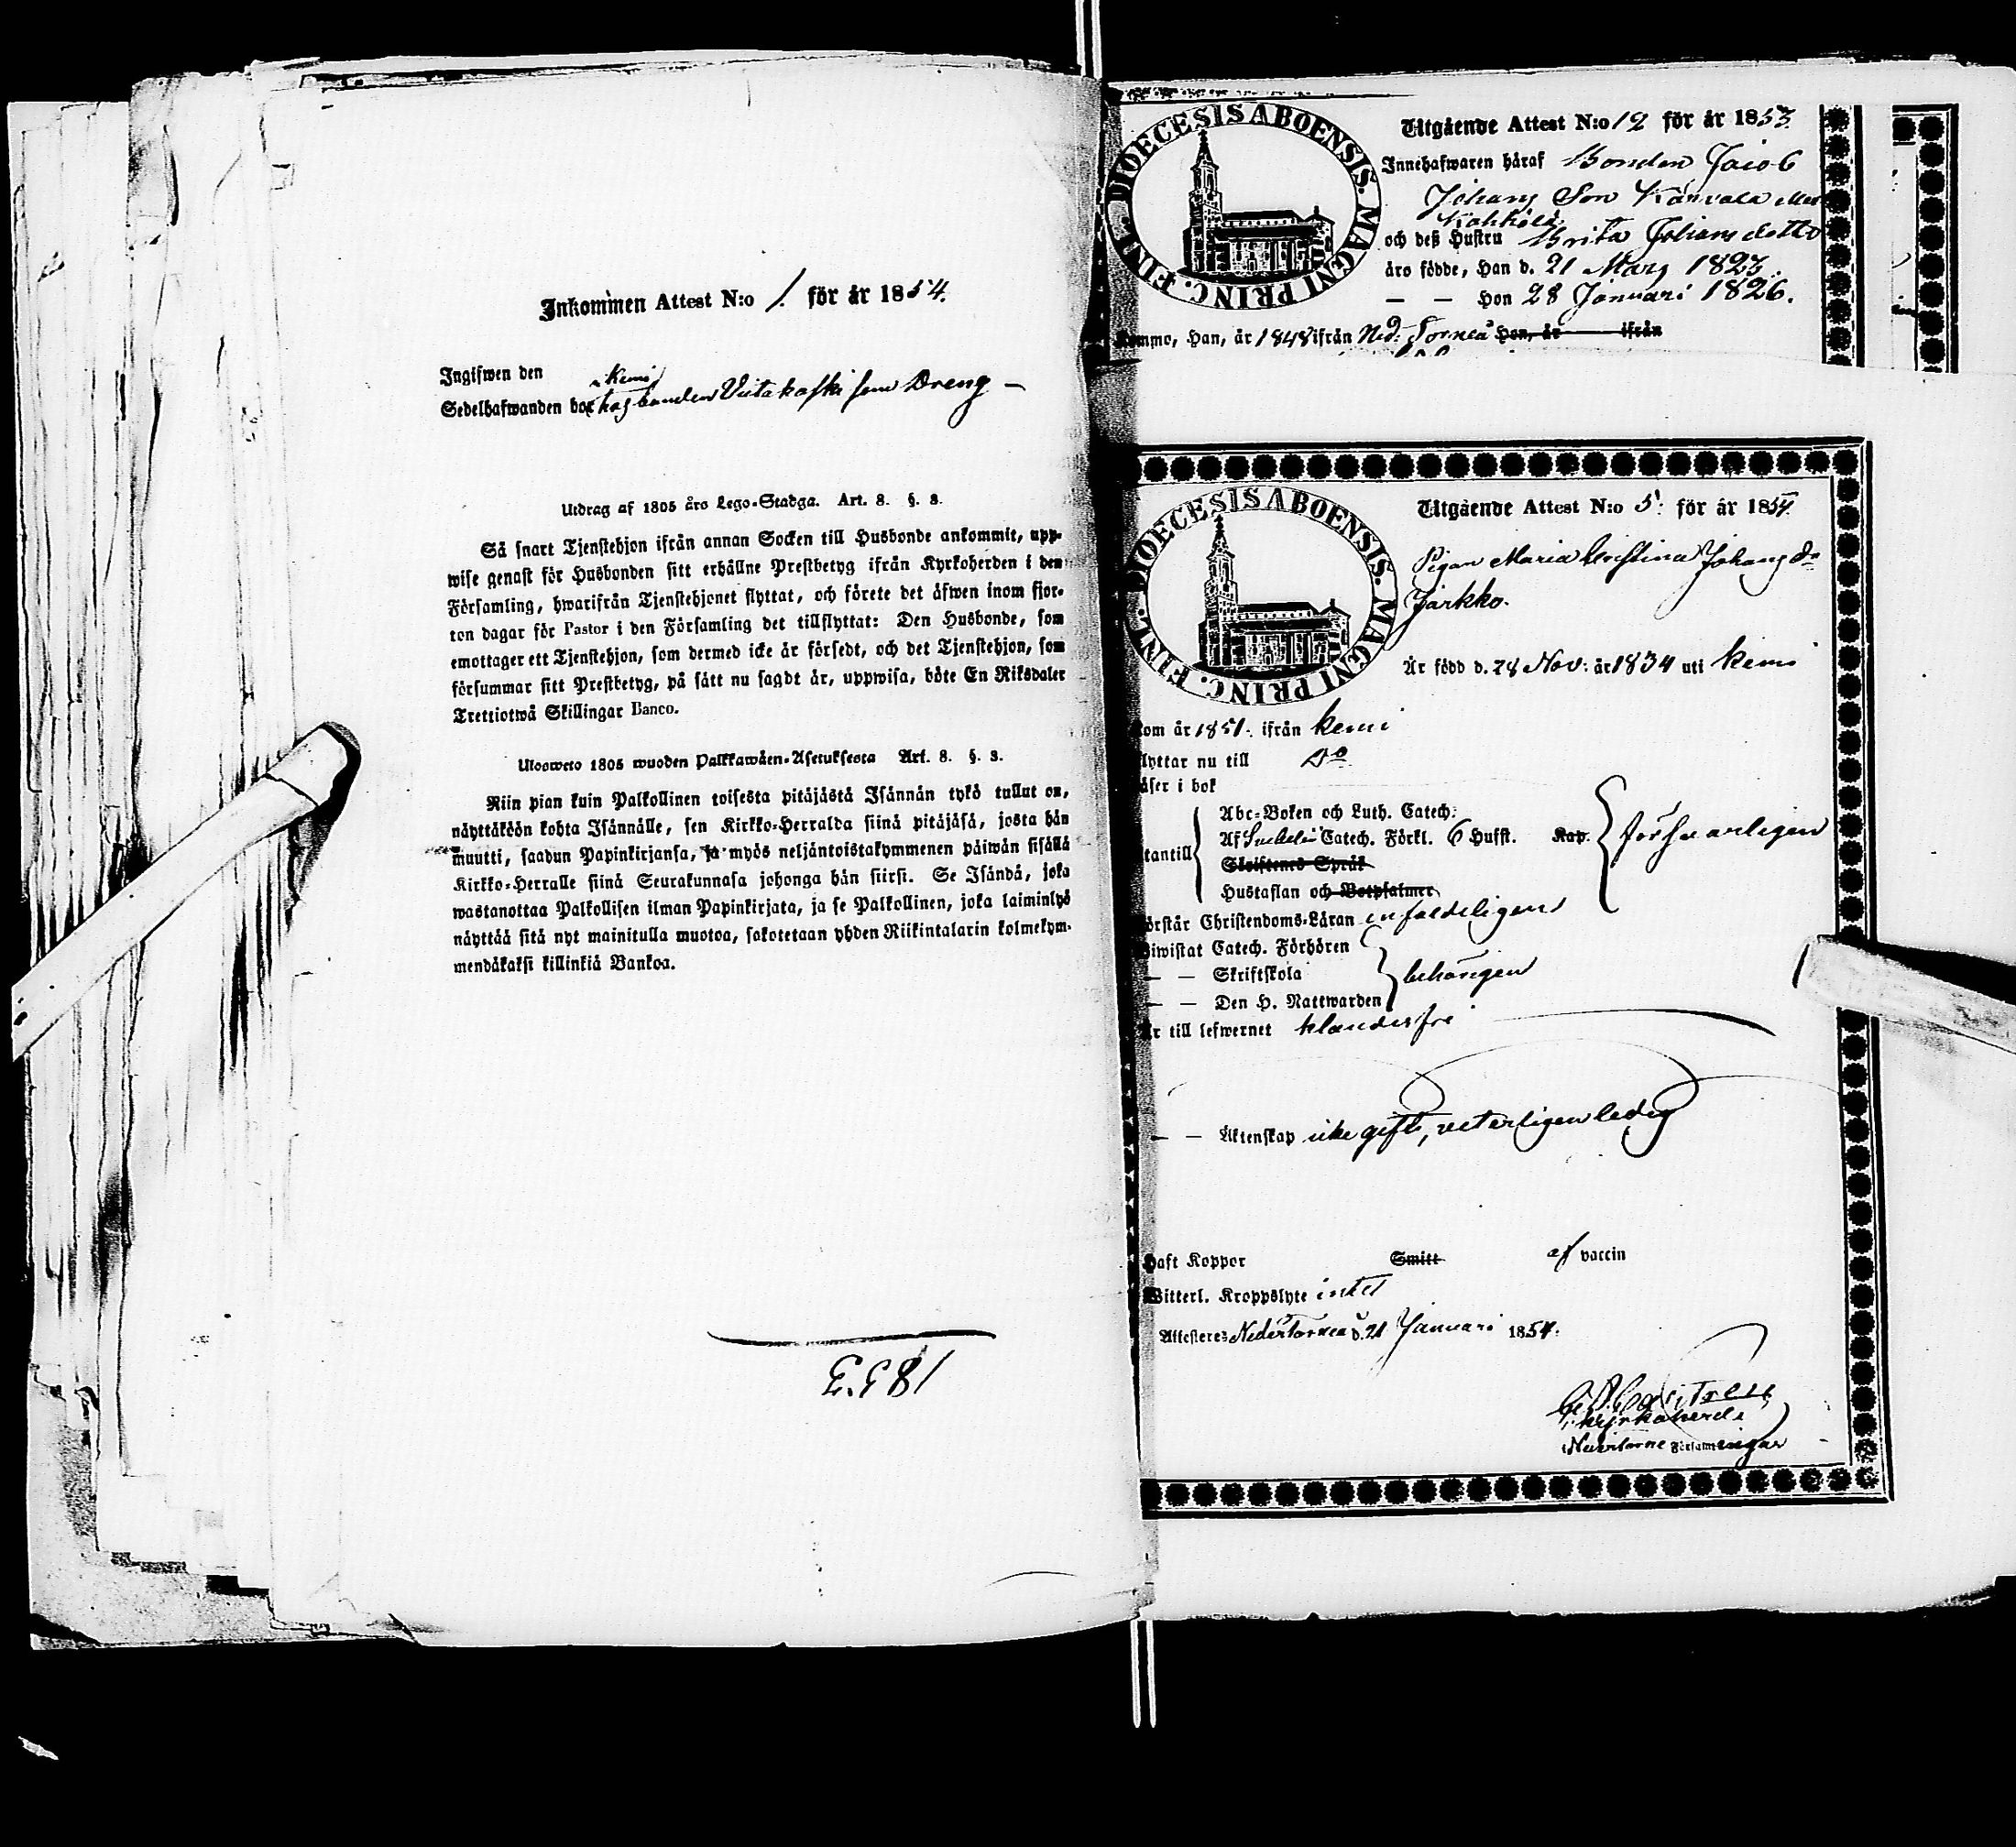 Inkommen Attest N:o 1. för år 1854.
Ingifwen den
i Kemi
Sedelhafwanden bor hos bonden Viitakoski som Dreng —
Utdrag af 1805 års Lego-Stadga. Art. 8. §. 3.
Så snart Tjenstehjon ifrån annan Socken till Husbonde ankommit, upp-
wise genast för Husbonden sitt erhållne Prestbetyg ifrån Kyrkoherden i den
Församling, hwarifrån Tjenstehjonet flyttat, och förete det äfwen inom fjor-
ton dagar för Pastor i den Församling det tillflyttat: Den Husbonde, som
emottager ett Tjenstehjon, som dermed icke är försedt, och det Tjenstehjon, som
försummar sitt Prestbetyg, på sätt nu sagdt är, uppwisa, böte En Riksdaler
Trettiotwå Skillingar Banco.
Ulosweto 1805 wuoden Palkkawäen-Asetuksesta Art. 8. §. 3.
Niin pian kuin Palkollinen toisesta pitäjästä Isännän tykö tullut on,
näyttäköön kohta Isännälle, sen Kirkko-Herralda siinä pitäjäsä, josta hän
muutti, saadun Papinkirjansa, ja myös neljäntoistakymmenen päiwän sisällä
Kirkko-Herralle siinä Seurakunnasa johonga hän siirsi. Se Isändä, joka
wastanottaa Palkollisen ilman Papinkirjata, ja se Palkollinen, joka laiminlyö
näyttää sitä nyt mainitulla muotoa, sakotetaan yhden Riikintalarin kolmekym-
mendäkaksi killinkiä Bankoa.
1853
DIOECESIS ABOENSIS. MAGNI PRINC. FINL.
Utgående Attest N:o 12 för år 1853
Innehafwaren häraf Bonden Jacob
Johans Son
och deß Hustru Brita Johans dotter
äro födde, Han d. 21 Mars 1823.
— — Hon 28 Januari 1826.
Kommo, Han, år 1848 ifrån Ned: Torneå Hon, år ifrån
DIOECESIS ABOENSIS. MAGNI PRINC. FINL.
Utgående Attest N:o 5: för år 1854
Pigan Maria Cristina Johans dr
Jarkko.
Är född d. 28 Nov: år 1834 uti Kemi
kom år 1851. ifrån Kemi
flyttar nu till Do
läser i bok
utantill
Abc-Boken och Luth. Catech:
Af Svebelii Catech. Förkl. 6 Hufst. Kap. försvarligen
Skriftenes Språk
Hustaflan och Botpsalmer
förstår Christendoms-Läran enfaldeligen
biwistat Catech. Förhören
— — Skriftskola behörigen
— — Den H. Nattwarden
är till lefwernet klanderfri
— — Äktenskap icke gift, veterligen ledig
Haft Koppor Smitt af vaccin
Witterl. Kroppslyte intet
Attesteres Neder Torneå d. 21 Januari 1854.
Castren
Kyrkoherde